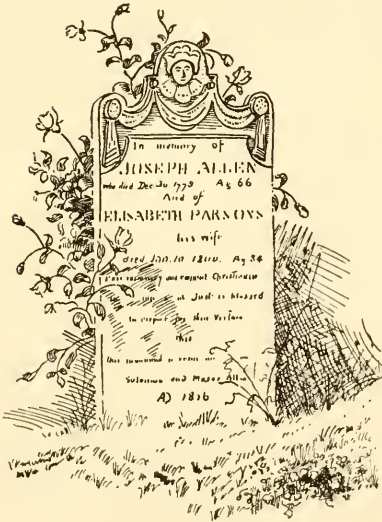 In memory of
JOSEPH ALLEN
who died Dec 30 1779 Ag 66
And of
ELISABETH PARSONS
his wife
died Jan. 10 1800. Ag 84
and
as Just is blessed
In respect for their Virtues
this
monument is
Solomon and Moses
AD 1816